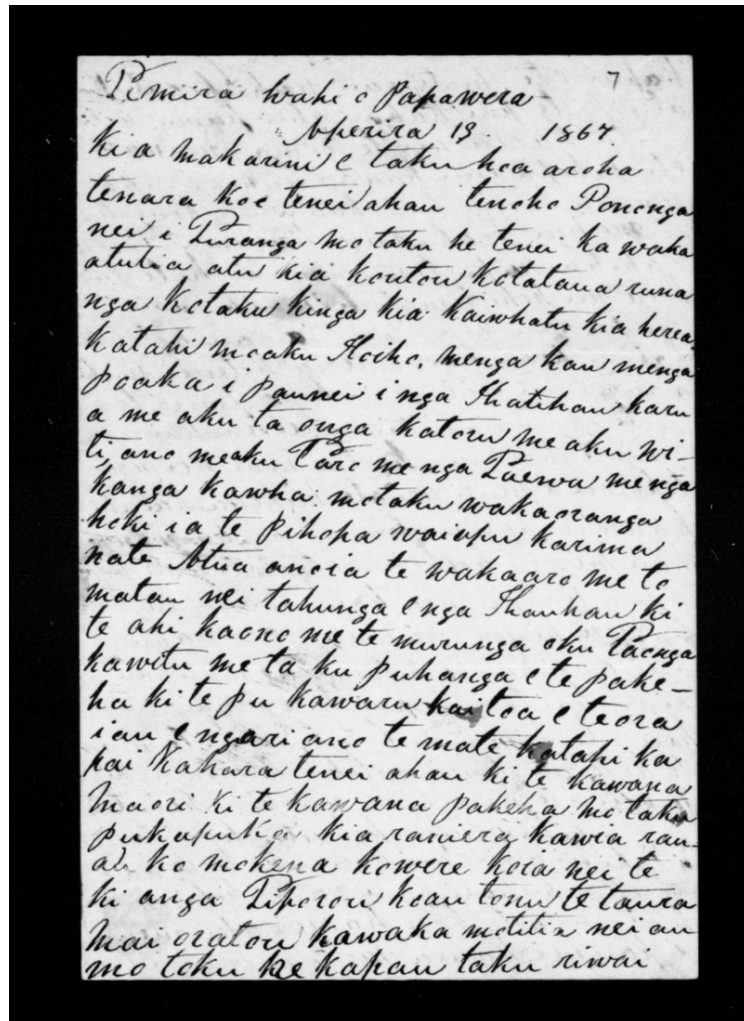 7
Pemira wahi o Papawera
Aperira 19. 1867.
Ki a makarini e taku hoa aroha
tenara koe tenei ahau tenoho Pononga
nei i Turanga mo taku he tenei ka waka
atutia atu kia koutou kotataua runa
nga kotaku kinga kia Kaiwhatu kia herea,
katahi meaku Hoiho, menga kau menga
poaka i paunei i nga Ihauhau karu
a me aku ta onga katoru me aku wi-
ti, ano meaku Taro me nga Taewa me nga
kanga kawha motaku wakaoranga
hoki ia te pihopa waiapu karima
nate Atua anoia te wakaaro me to
matau nei tahunga e nga Ihauhau ki
te ahi kaono me te murunga oku Taonga
kawitu me ta ku puhanga e te pake-
ha ki te pu kawaru kaitoa e teora
iau e ngari ano te mate katahi ka
pai Kahara tenei ahau ki te kawana
maori ki te kawana pakeha mo taku
pukapuka kia raniera kawia rau-
ko mokena kowere koia nei te
ki anga Tiporou koau tonu te taura
mai oratou kawaka motitia nei au
mo toku he kapau taku riwai